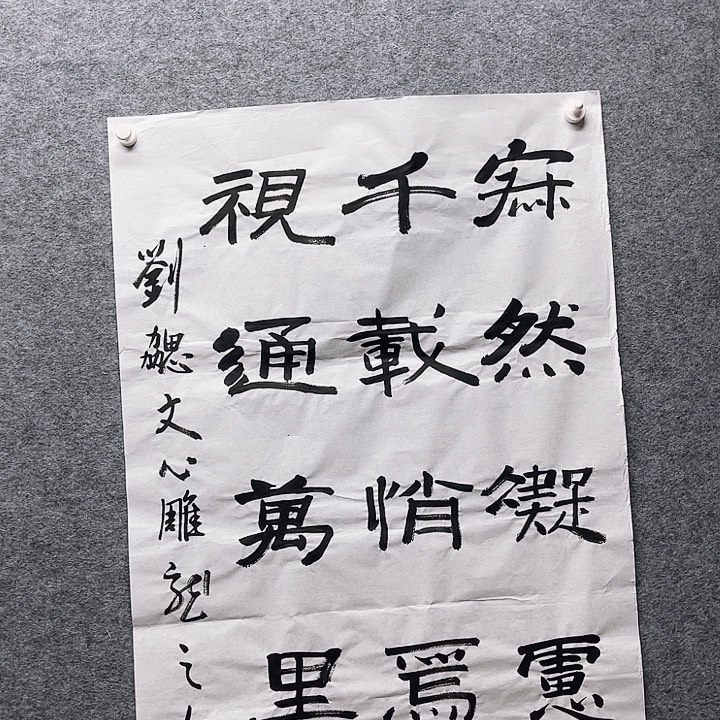 寂然凝慮
千載悄焉
視通萬里
劉勰文心雕龍之